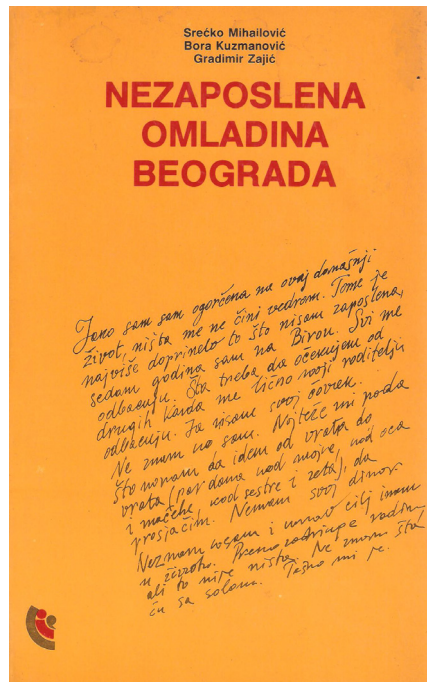 Srećko Mihailović
Bora Kuzmanović
Gradimir Zajić
NEZAPOSLENA
OMLADINA
BEOGRADA
Jako sam sam ogorčena na ovaj današnji
život, ništa me ne čini vedrom. Tome je
najviše doprinelo to što nisam zaposlena,
sedam godina sam na Birou. Svi me
odbacuju. Šta treba da očekujem od
drugih kada me lično moji roditelji
odbacuju. Ja nisam svoj čovek.
Ne znam ko sam. Najteže mi pada
što moram da idem od vrata do
vrata (par dana kod majke, kod oca
i maćehe, kod sestre i zeta), da
prosjačim. Nemam svoj dinar.
Neznam uopšte cilj imam
u životu. zadruga radim,
ali to nije ništa. Ne znam šta
ću sa sobom. Teško mi je.